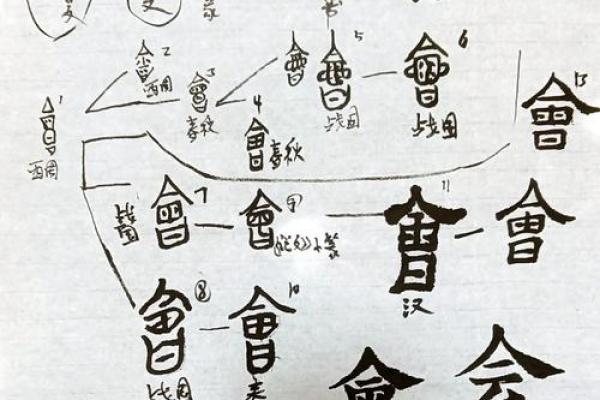 會 1 西周
會 2 西周
會 3 春秋
會 4 春秋
會 會 5 战国
會 6 战国
會 7 战国
會 8 战国
會 9 《说文》小篆
會 10 秦
會 11 汉
會
會 13
會
会